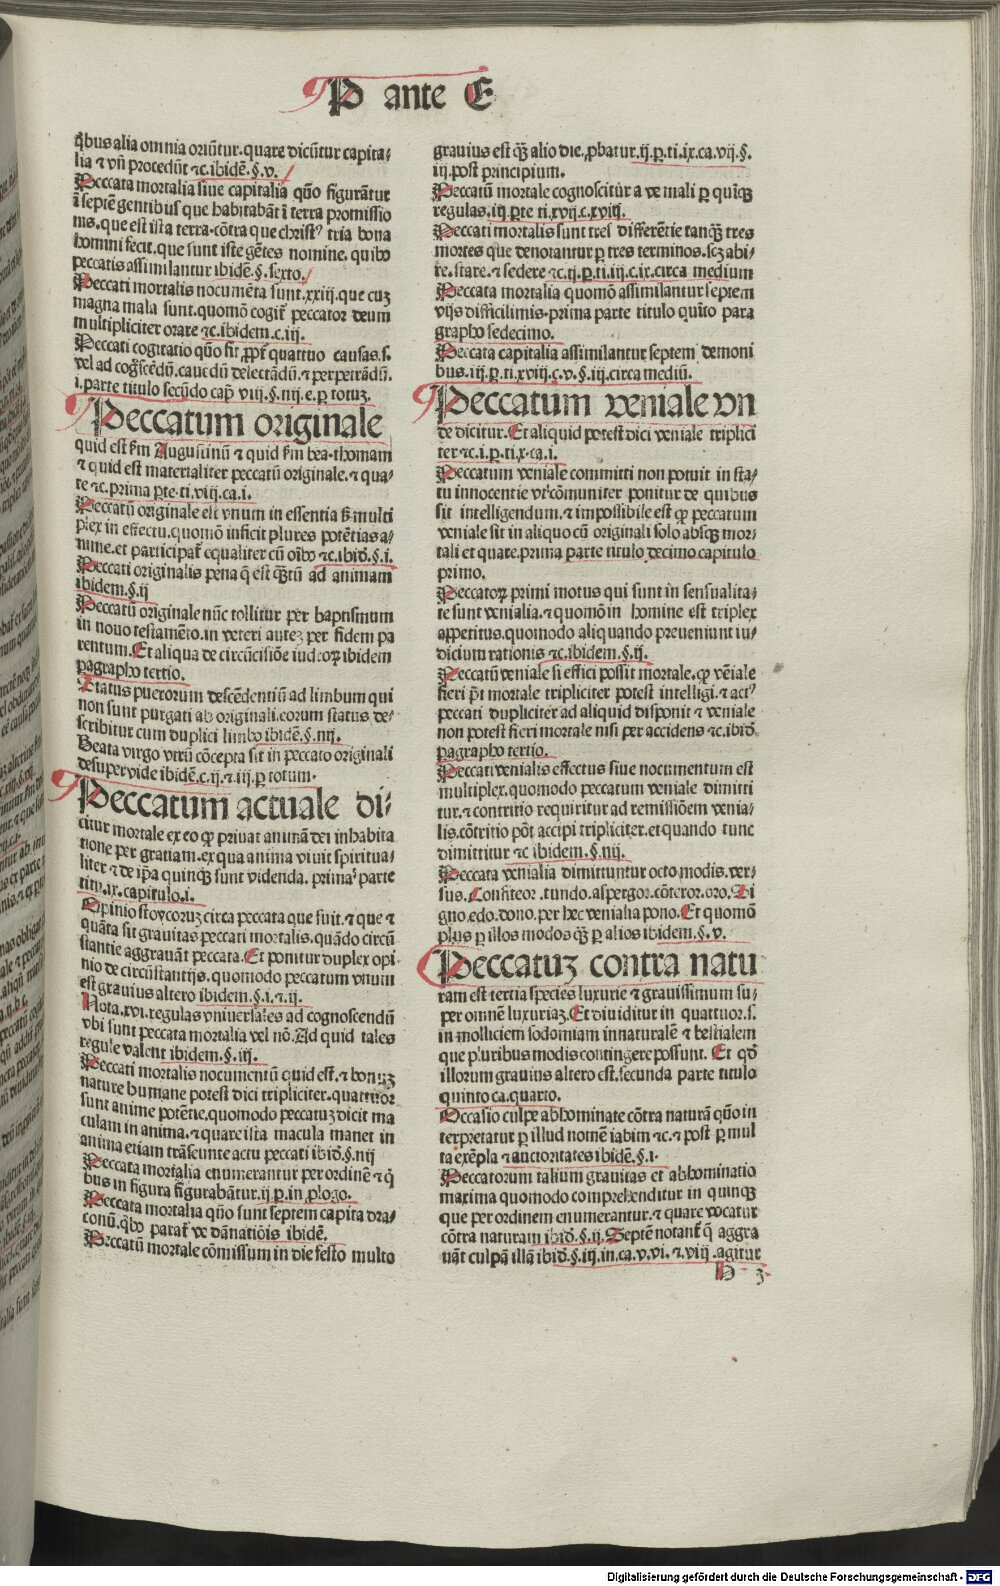 P ante E
q̄bus alia omnia oriūtur.quare dicūtur capita⸗
lia ⁊ vn̄ procedūt ⁊c.ibidē.§.v.
Peccata mortalia siue capitalia qūo figurātur
ī septē gentibus que habitabāt ī terra promissio
nis.que est ista terra.cōtra que christꝰ tria bona
homini fecit.que sunt iste gētes nomine.quibꝰ
peccatis assimilantur ibidē.§.sexto.
Peccati mortalis nocumēta sunt.xxiij.que cuꝫ
magna mala sunt.quomō cogit᷑ peccator deum
multipliciter orare ⁊c.ibidem.c.iij.
Peccati cogitatio qūo fit ꝓpt᷑ quattuor causas.s.
vel ad coḡscēdū.cauēdū delectādū.⁊ perpetrādū.
i.parte titulo secūdo cap̄ viij.§.iiij.e.ꝑ totuꝫ.
Peccatum originale
quid est ẜm Augustinū ⁊ quid ẜm bea.thomam
⁊ quid est materialiter peccatū originale.⁊ qua⸗
re ⁊c.prima ꝑte.ti.viij.ca.i.
Peccatū originale est vnum in essentia ẜ multi
plex in effectu.quomō inficit plures potētias a⸗
nime.et participat᷑ equaliter cū oībꝰ ⁊c.ibid̄.§.i.
Peccati originalis pena q̄ est q̄ȝtū ad animam
ibidem.§.ij
Peccatū originale nūc tollitur per baptismum
in nouo testamēto.in veteri auteȝ per fidem pa
rentum.Et aliqua de circūcisiōe iudeoꝝ ibidem
paragrapho tertio.
Status puerorum descēdentiū ad limbum qui
non sunt purgati ab originali.eorum status de⸗
scribitur cum duplici limbo ibidē.§.iiij.
Beata virgo vtrū cōcepta sit in peccato originali
desuper vide ibidē.c.ij.⁊.iij.ꝑ totum.
Peccatum actuale di⸗
citur mortale ex eo ꝙ priuat animā dei inhabita
tione per gratiam.ex qua anima viuit spiritua⸗
liter ⁊ de ip̄a quinqꝫ sunt videnda. prima parte
titu.ix.capitulo.i.
Opinio stoycoruȝ circa peccata que fuit.⁊ que ⁊
quāta sit grauitas peccati mortalis.quādo circū
stantie aggrauāt peccata.Et ponitur duplex opi
nio de circūstantijs.quomodo peccatum vnum
est grauius altero ibidem.§.i.⁊.ij.
Nota.xvi.regulas vniuersales ad cognoscendū
vbi sunt peccata mortalia vel nō.Ad quid tales
regule valent ibidem.§.iij.
Peccati mortalis nocumentū quid est.⁊ bonuȝ
nature humane potest dici tripliciter.quattuor
sunt anime potētie.quomodo peccatuȝ dicit ma
culam in anima.⁊ quare ista macula manet in
anima etiam trāseunte actu peccati ibid̄.§.iiij
Peccata mortalia enumerantur per ordinē ⁊ q̄
bus in figura figurabātur.ij.ꝑ.in ꝓlogo.
Peccata mortalia qūo sunt septem capita dra⸗
conū.q̄bꝰ parat᷑ ve dānatiōis ibidē.
Peccatū mortale cōmissum in die festo multo
grauius est q̄ȝ alio die.ꝓbatur.ij.ꝑ.ti.ix.ca.vij.§.
iij.post principium.
Peccatū mortale cognoscitur a ve mali ꝑ quīqꝫ
regulas.iij.ꝑte ti.xvij.c.xviij.
Peccati mortalis sunt tres differētie tanq̄ȝ tres
mortes que denotantur ꝑ tres terminos.scȝ abi⸗
re.stare.⁊ sedere ⁊c.ij.ꝑ.ti.iij.c.ix.circa medium
Peccata mortalia quomō assimilantur septem
vijs difficilimis.prima parte titulo quīto para
grapho sedecimo.
Peccata capitalia assimilantur septem demoni
bus.iij.ꝑ.ti.xviij.c.v.§.iij.circa mediū.
Peccatum veniale vn
de dicitur.Et aliquid potest dici veniale triplici
ter ⁊c.i.ꝑ.ti.x.ca.i.
Peccatum veniale committi non potuit in sta⸗
tu innocentie vt cōmuniter ponitur de quibus
sit intelligendum.⁊ impossibile est ꝙ peccatum
veniale sit in aliquo cū originali solo absqꝫ mor⸗
tali et quare.prima parte titulo decimo capitulo
primo.
Peccatoꝝ primi motus qui sunt in sensualita⸗
te sunt venialia.⁊ quomō in homine est triplex
appetitus.quomodo aliquando preueniunt iu⸗
dicium rationis ⁊c.ibidem.§.ij.
Peccatū veniale si effici possit mortale.ꝙ vēiale
fieri p̄t mortale tripliciter potest intelligi.⁊ actꝰ
peccati dupliciter ad aliquid disponit ⁊ veniale
non potest fieri mortale nisi per accidens ⁊c.ibid̄.
paragrapho tertio.
Peccati venialis effectus siue nocumentum est
multiplex.quomodo peccatum veniale dimitti
tur.⁊ contritio requiritur ad remissiōem venia⸗
lis.cōtritio pōt accipi tripliciter.et quando tunc
dimittitur ⁊c ibidem.§.iiij.
Peccata venialia dimittuntur octo modis.ver⸗
sus.Confiteor.tundo.aspergor.cōteror.oro.Si
gno.edo.dono.per hec venialia pono.Et quomō
plus ꝑ illos modos q̄ȝ ꝑ alios ibidem.§.v.
Peccatuȝ contra natu
ram est tertia species luxurie ⁊ grauissimum su⸗
per omnē luxuriaȝ.Et diuiditur in quattuor.s.
in molliciem sodomiam innaturalē ⁊ bestialem
que pluribus modis contingere possunt. Et qd̄
illorum grauius altero est.secunda parte titulo
quinto ca.quarto.
Occasio culpe abhominate cōtra naturā qūo in
terpretatur ꝑ illud nomē iabim ⁊c.⁊ post ꝑ mul
ta exēpla ⁊ auctoritates ibidē.§.i.
Peccatorum talium grauitas et abhominatio
maxima quomodo comprehenditur in quinqꝫ
que per ordinem enumerantur.⁊ quare vocatur
cōtra naturam ibid̄.§.ij.Septē notant᷑ q̄ aggra
uāt culpā illā ibid̄.§.iij.in.ca.v.vi.⁊.viij.agitur
H 3
Digitalisierung gefördert durch die Deutsche Forschungsgemeinschaft - DFG